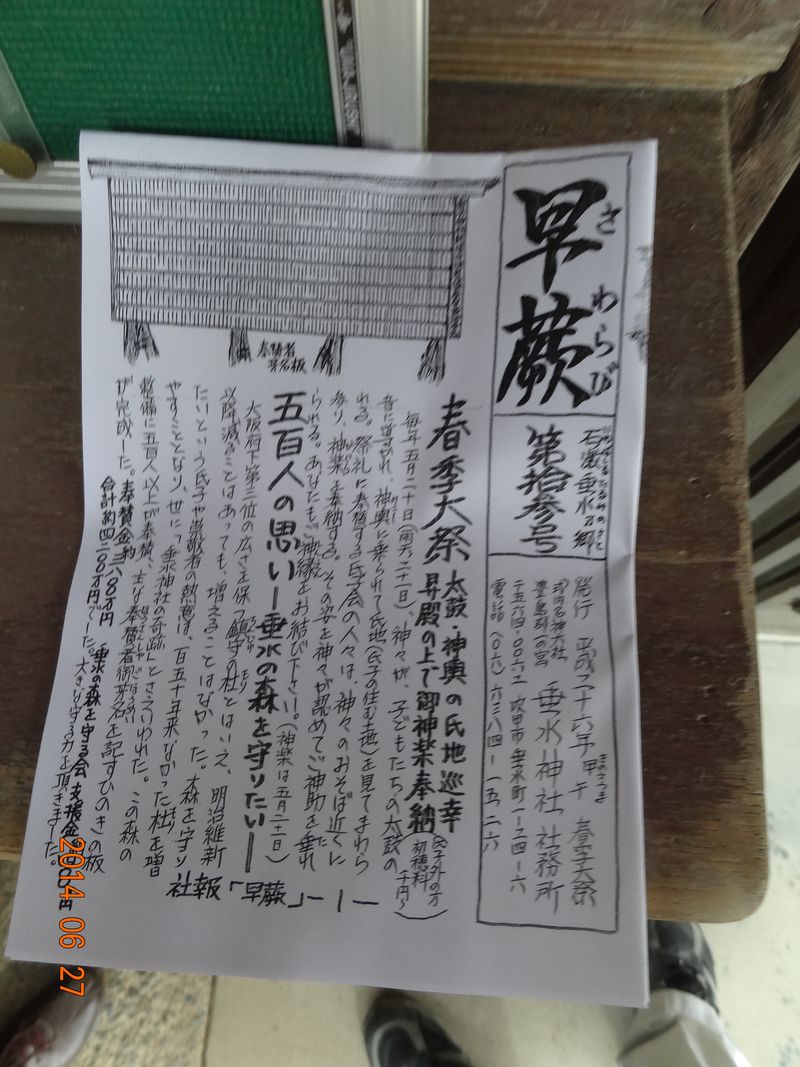 早蕨
さわらび
石激垂水乃郷
第拾参号
発行 平成二十六年 甲午 春季大祭
きのえうま
式内名神大社
豊島郡一の宮
垂水神社 社務所
〒五六四-〇〇六二 吹田市垂水町一-二四-六
電話 (〇六)六三八四-一五二六
春季大祭
太鼓・神輿の氏地巡幸
昇殿の上で御神楽奉納
(氏子外の方
初穂料
千円〜)
毎年五月二十日(雨天二十一日)、神々が、子どもたちの太鼓の
音に導かれ、神輿に乗られて氏地(氏子の住む土地)を見てまわら
れる。祭礼に奉賛する氏子会の人々は、神々のおそば近くに
参り、神楽を奉納する。その姿を神々が認めてご神助を垂れ
られる。あなたもご神縁をお結び下さい。(神楽は五月二十一日)
五百人の思い―垂水の森を守りたい―
大阪府下第三位の広さを保つ鎮守の杜とはいえ、明治維新
以降減ることはあっても、増えることはなかった。森を守り
たいという氏子や崇敬者の熱意は、百五十年来なかった杜を増
やすこととなり、世に「垂水神社の奇跡」とさえいわれた。この森の
整備に五百人以上が奉賛、主な奉賛者御芳名を記すひのきの板
が完成した。
奉賛金約三八〇〇万円 垂水の森を守る会支援金
合計約四二〇〇万円でした。大きな守る力を頂きました。
奉賛者
芳名板
社報「早蕨」―1―
2014 06 27